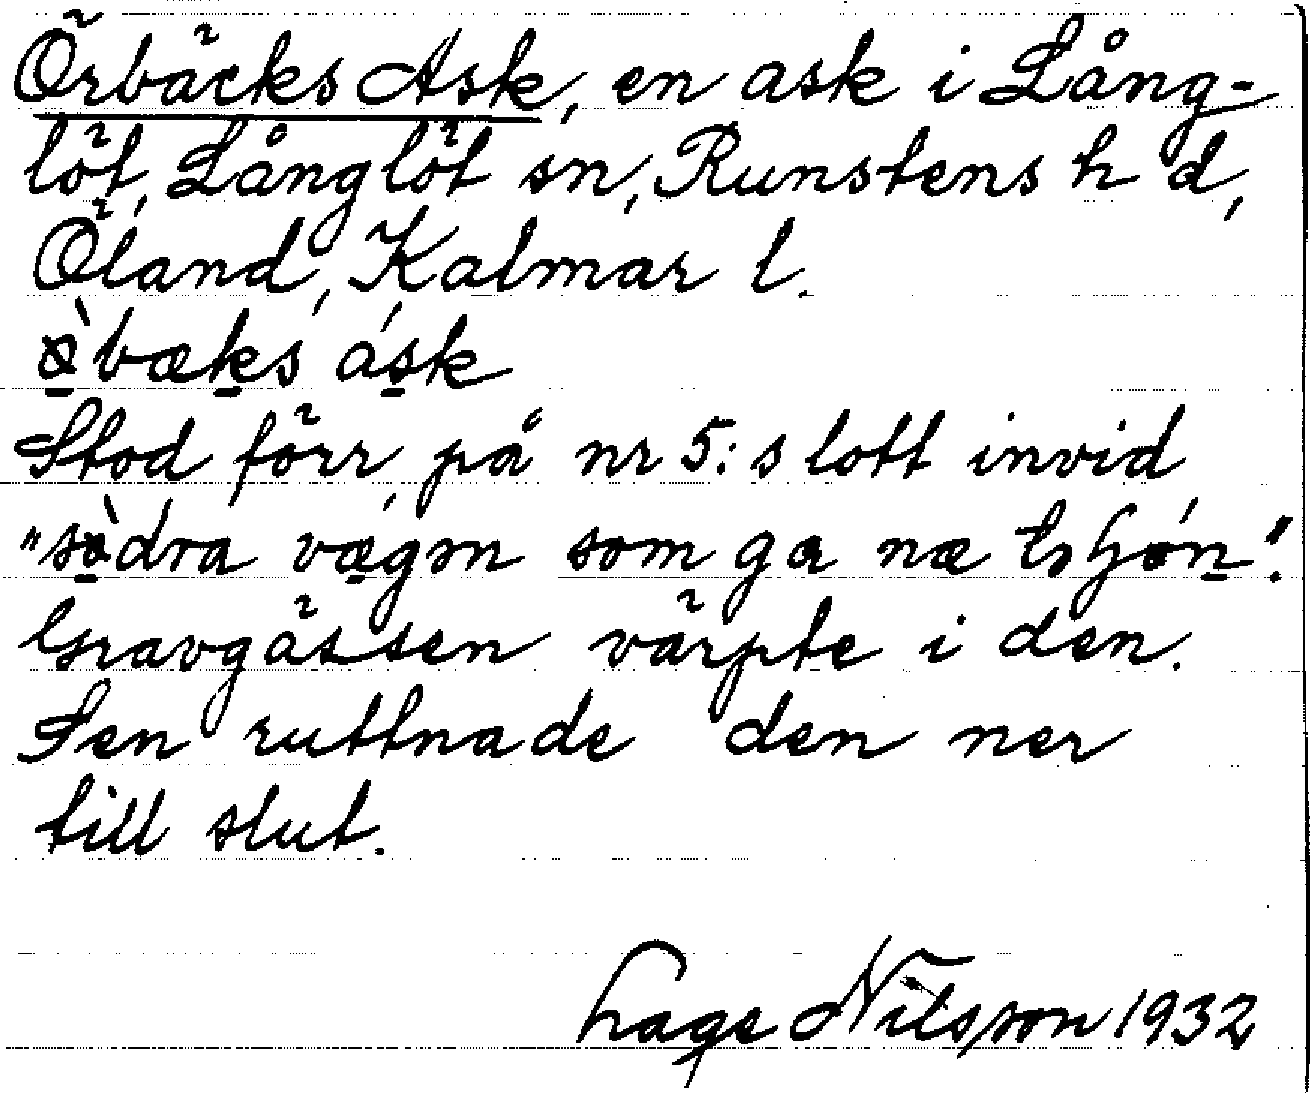 Örbäcks Ask, en ask i Lång-
löt, Långlöt sn, Runstens hd,
Öland, Kalmar l.
Stod förr på nr 5:s lott invid
"södra vægən som ga næ
Gravgässen värpte i den.
Sen ruttnade den ner
till slut.
Lage Nilsson 1932